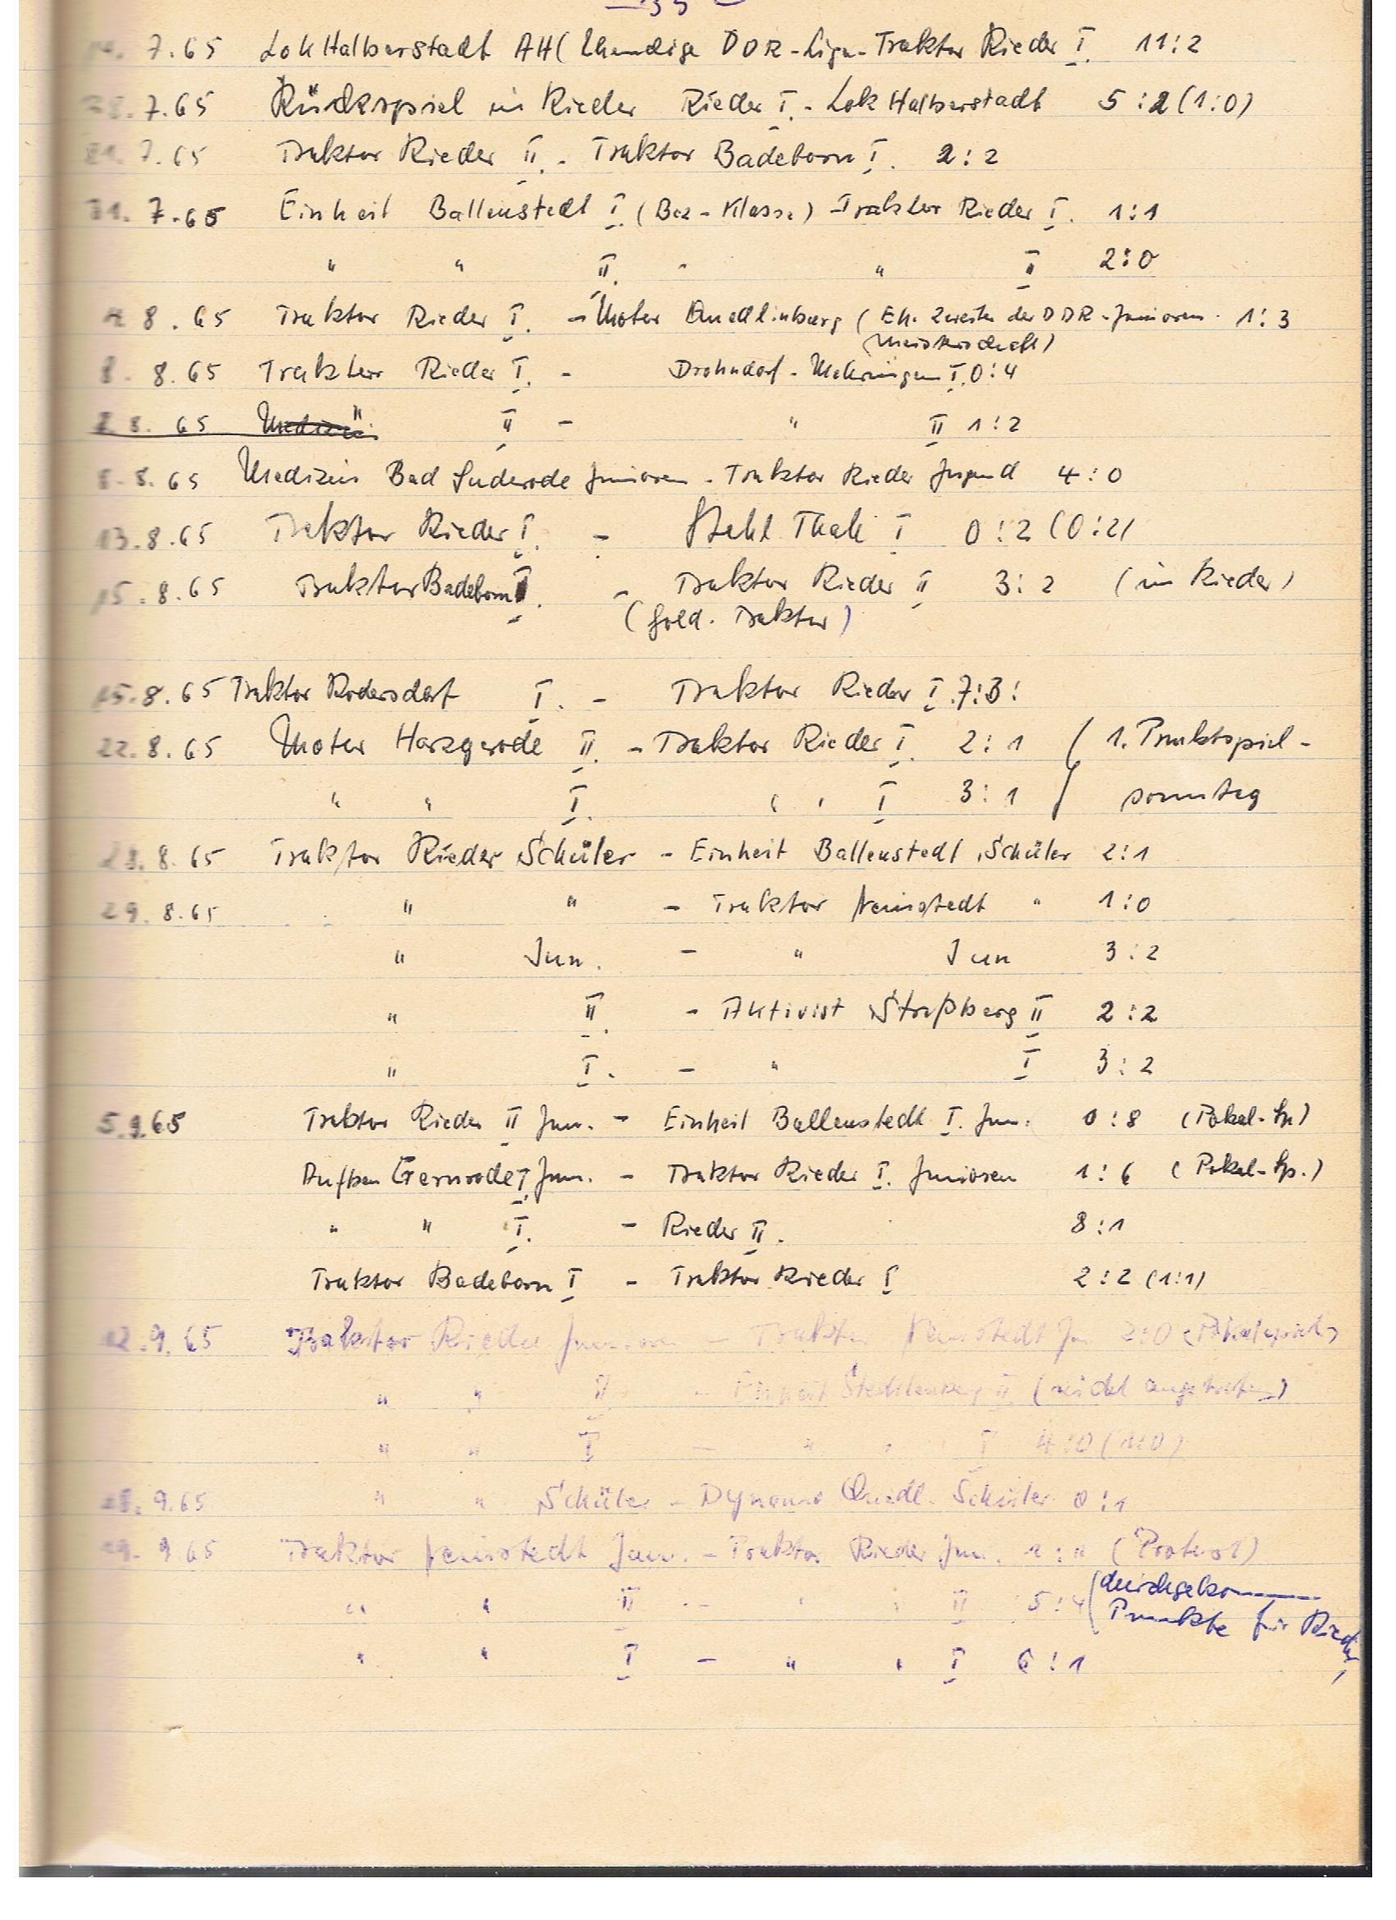 7.65 Lok Halberstadt AH (Ehemalige DDR-Liga - Traktor Rieder I. 11:2
7.65 Rückspiel in Rieder Rieder I. - Lok Halberstadt 5:2 (1:0)
7.65 Traktor Rieder II. - Traktor Badeborn I. 2:2
31.7.65 Einheit Ballenstedt I. (Bez-Klasse) - Traktor Rieder I. 1:1
" " II. - " II 2:0
8.65 Traktor Rieder I. - Motor Quedlinburg (Eh. Zweiter der DDR-Junioren- 1:3
meisterschaft)
8.8.65 Traktor Rieder I. - Drohndorf-Mehringen I. 0:4
8.65 " II - " II 1:2
8.8.65 Medizin Bad Suderode Junioren - Traktor Rieder Jugend 4:0
13.8.65 Traktor Rieder I. - Stahl Thale I 0:2 (0:2)
15.8.65 Traktor Badeborn I. - Traktor Rieder II 3:2 (in Rieder)
(Gold. Traktor)
15.8.65 Traktor Rodersdorf I. - Traktor Rieder I 7:3:
22.8.65 Motor Harzgerode II. - Traktor Rieder I. 2:1 (1. Punktspiel-
" " I. " " I 3:1 sonntag
8.65 Traktor Rieder Schüler - Einheit Ballenstedt Schüler 2:1
29.8.65 " " - Traktor Neinstedt " 1:0
" Jun. - " Jun 3:2
" II. - Aktivist Straßberg II 2:2
" I. - " I 3:2
5.9.65 Traktor Rieder II Jun. - Einheit Ballenstedt I. Jun. 0:8 (Pokal-Sp)
Aufbau Gernrode I. Jun. - Traktor Rieder I. Junioren 1:6 (Pokal-Sp.)
" " I. - Rieder II. 8:1
Traktor Badeborn I - Traktor Rieder I 2:2 (1:1)
12.9.65 Traktor Rieder Junioren - Traktor Neinstedt Jun 2:0 (Pokalspiel)
" " II. - Einheit Stecklenberg II (nicht angetreten)
" " I - " " I 4:0 (1:0)
9.65 " " Schüler - Dynamo Quedl. Schüler 0:1
19.9.65 Traktor Neinstedt Jun. - Traktor Rieder Jun. (Protest)
" " II - " " II 5:4 (durchgekommen
Punkte für Rieder)
" " I - " " I 6:1